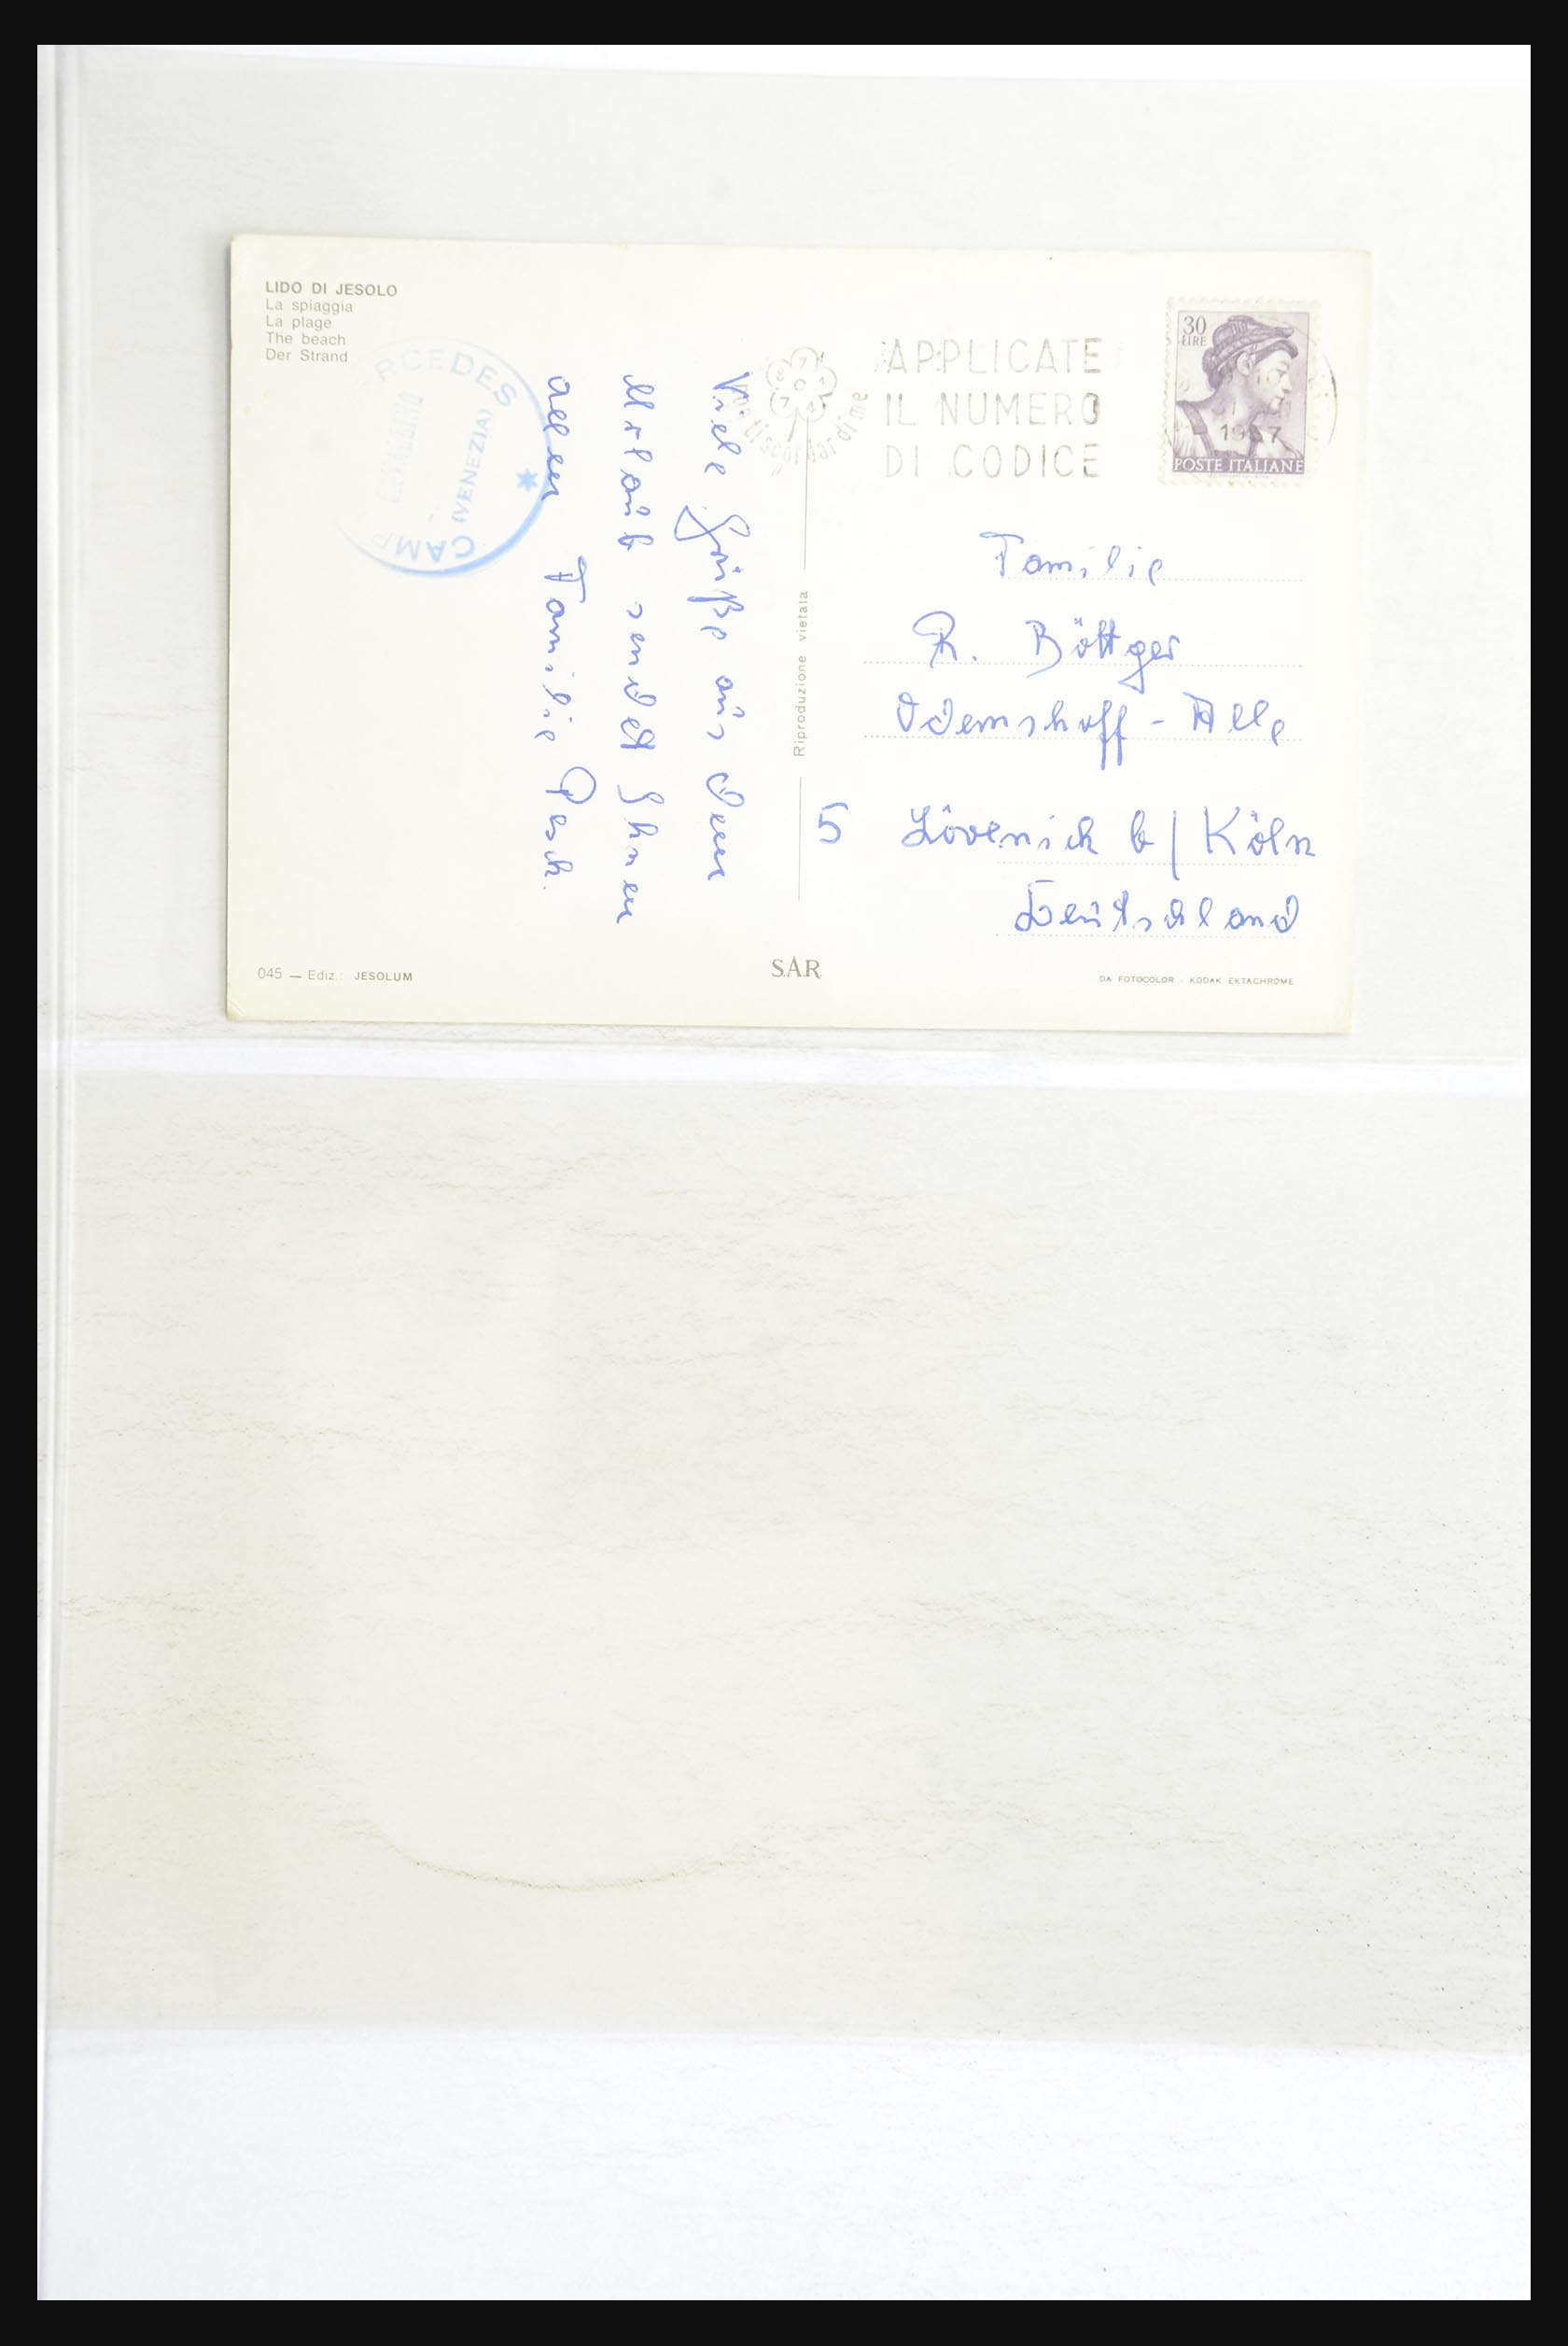 LIDO DI JESOLO
La spiaggia
La plage
The beach
Der Strand
CAMP
RCEDES
(VENEZIA)
Viele Grüße aus dem
Urlaub sendet Ihnen
allen Familie Pesch.
Riproduzione vietata
non ti scordar di me
APPLICATE
IL NUMERO
DI CODICE
30
LIRE
1967
POSTE ITALIANE
Familie
R. Böttger
Odemshoff - Alle
5 Lövenich b/ Köln
Deutschland
045 — Ediz.: JESOLUM
S.A.R.
DA FOTOCOLOR - KODAK EKTACHROME